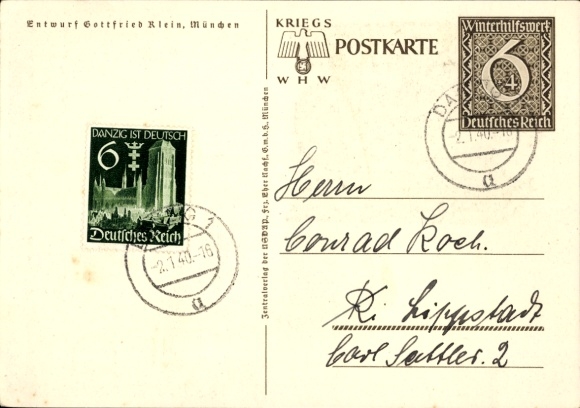 Entwurf Gottfried Klein, München
KRIEGS
WHW
POSTKARTE
Winterhilfswerk
6+4
Deutsches Reich
DANZIG
-2.1.40.-16
a
DANZIG IST DEUTSCH
6
Deutsches Reich
DANZIG 1
-2.1.40.-16
a
Zentralverlag der NSDAP., Frz. Eher Nachf. G.m.b.H. München
Herrn
Conrad Koch.
Lippstadt
Carl Sattler. 2